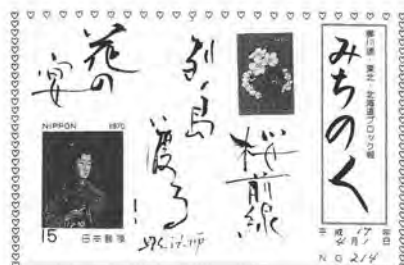 郵川連・東北・北海道ブロック報
みちのく
平成17年
4月1日
NO 214
桜前線
列島
渡る!
花の
宴
NIPPON 1970
15 日本郵便